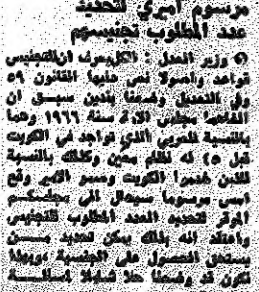 مرسوم أميري لتحديد
عدد المطلوب تجنيسهم
وزير العدل : الكل يعرف ان للتجنيس
قواعد وأصولا نص عليها القانون ٥٩
وفي التعديل وضعنا بندين سبق ان
مجلس الامة سنة ١٩٦٦ وهما
بالنسبة للعربي الذي تواجد في الكويت
قبل ٤٥ له نظام معين وكذلك بالنسبة
الكويت وسمو الأمير وقع
امس مرسوما سيحال الى مجلسكم
الموقر لتحديد العدد المطلوب للتجنيس
وأعتقد انه بذلك يمكن تحديد مـن
يستحق الحصول على الجنسية وبهذا
نكون قد وضعنا حلا